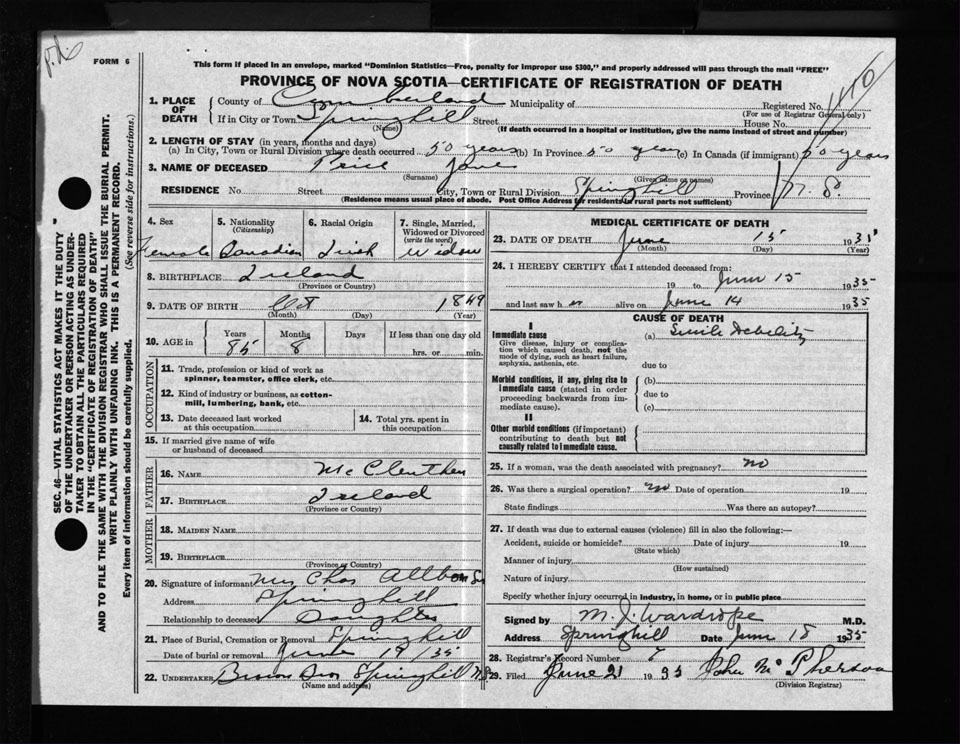 FORM 6
This form if placed in an envelope, marked "Dominion Statistics—Free, penalty for improper use $300," and properly addressed will pass through the mail "FREE"
PROVINCE OF NOVA SCOTIA—CERTIFICATE OF REGISTRATION OF DEATH
SEC. 46—VITAL STATISTICS ACT MAKES IT THE DUTY
OF THE UNDERTAKER OR PERSON ACTING AS UNDER-
TAKER TO OBTAIN ALL THE PARTICULARS REQUIRED
IN THE "CERTIFICATE OF REGISTRATION OF DEATH"
AND TO FILE THE SAME WITH THE DIVISION REGISTRAR WHO SHALL ISSUE THE BURIAL PERMIT.
WRITE PLAINLY WITH UNFADING INK. THIS IS A PERMANENT RECORD.
Every item of information should be carefully supplied. (See reverse side for instructions.)
1. PLACE OF DEATH County of Cumberland Municipality of Registered No.
(For use of Registrar General only)
If in City or Town Springhill Street House No.
(Name) (If death occurred in a hospital or institution, give the name instead of street and number)
2. LENGTH OF STAY (in years, months and days)
(a) In City, Town or Rural Division where death occurred 50 years (b) In Province 50 years (c) In Canada (if immigrant) 50 years
3. NAME OF DECEASED Price Jane
(Surname) (Given name or names)
RESIDENCE No. Street City, Town or Rural Division Springhill Province N. S.
(Residence means usual place of abode. Post Office Address for residents in rural parts not sufficient)
4. Sex Female
5. Nationality (Citizenship) Canadian
6. Racial Origin Irish
7. Single, Married, Widowed or Divorced (write the word) Widow
8. BIRTHPLACE Ireland
(Province or Country)
9. DATE OF BIRTH Oct 1849
(Month) (Day) (Year)
10. AGE in Years 85 Months 8 Days If less than one day old hrs. or min.
OCCUPATION
11. Trade, profession or kind of work as spinner, teamster, office clerk, etc.
12. Kind of industry or business, as cotton-mill, lumbering, bank, etc.
13. Date deceased last worked at this occupation
14. Total yrs. spent in this occupation
15. If married give name of wife or husband of deceased
FATHER
16. NAME
17. BIRTHPLACE Ireland
(Province or Country)
MOTHER
18. MAIDEN NAME
19. BIRTHPLACE
(Province or Country)
20. Signature of informant Mrs Chas
Address Springhill
Relationship to deceased Daughter
21. Place of Burial, Cremation or Removal Springhill
Date of burial or removal June 19/35
22. UNDERTAKER Brown Bros Springhill N.S.
(Name and address)
MEDICAL CERTIFICATE OF DEATH
23. DATE OF DEATH June 15 1935
(Month) (Day) (Year)
24. I HEREBY CERTIFY that I attended deceased from:
19 to June 15 1935
and last saw her alive on June 14 1935
CAUSE OF DEATH
I
Immediate cause
Give disease, injury or complication which caused death, not the mode of dying, such as heart failure, asphyxia, asthenia, etc.
(a) Senile Debility
due to
Morbid conditions, if any, giving rise to immediate cause (stated in order proceeding backwards from immediate cause).
(b)
due to
(c)
II
Other morbid conditions (if important) contributing to death but not causally related to immediate cause.
25. If a woman, was the death associated with pregnancy? no
26. Was there a surgical operation? no Date of operation 19
State findings Was there an autopsy?
27. If death was due to external causes (violence) fill in also the following:—
Accident, suicide or homicide? Date of injury 19
(State which)
Manner of injury
(How sustained)
Nature of injury
Specify whether injury occurred in industry, in home, or in public place
Signed by M. J. Wardrope M.D.
Address Springhill Date June 18 1935
28. Registrar's Record Number
29. Filed June 21 1935 John McPherson
(Division Registrar)